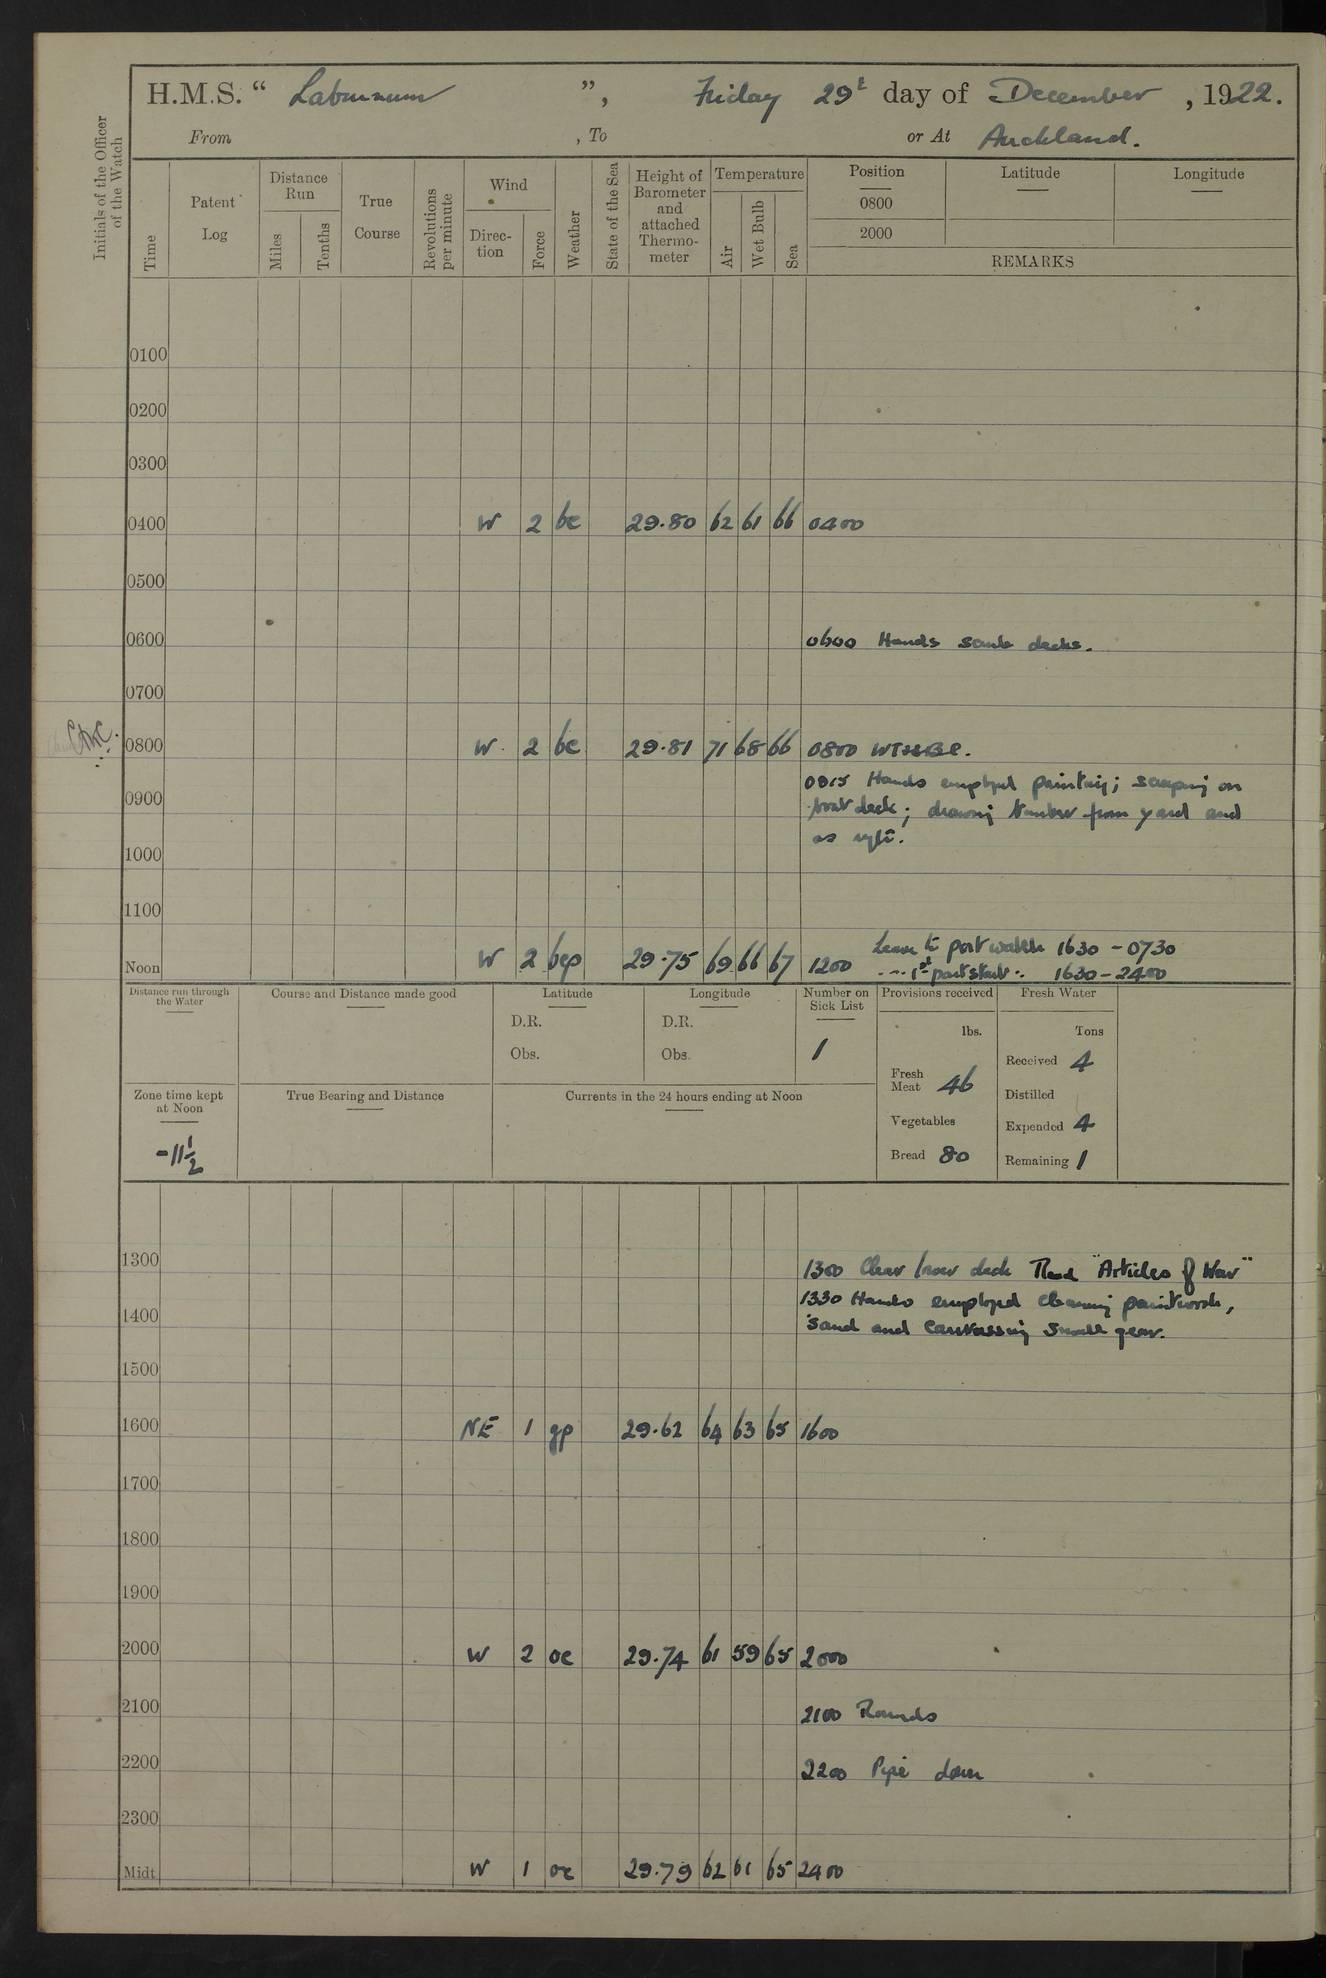 H.M.S. “ Laburnum ”, Friday 29t day of December , 1922.
From , To or At Auckland.
Initials of the Officer of the Watch
Time
Patent Log
Distance Run
Miles
Tenths
True Course
Revolutions per minute
Wind
Direc-tion
Force
Weather
State of the Sea
Height of Barometer and attached Thermo-meter
Temperature
Air
Wet Bulb
Sea
Position
0800
2000
Latitude
Longitude
REMARKS
0100
0200
0300
0400 W 2 bc 29.80 62 61 66 0400
0500
0600 0600 Hands scrub decks.
0700
0800 W. 2 bc 29.81 71 68 66 0800
0915 Hands employed painting; scraping on
0900 boat deck; drawing timber from yard and
as
1000
1100
Leave to port watch 1630 - 0730
Noon W 2 bcp 29.75 69 66 67 1200 1st part starb. 1630 - 2400
Distance run through the Water
Course and Distance made good
Latitude
D.R.
Obs.
Longitude
D.R.
Obs.
Number on Sick List
1
Provisions received
lbs.
Fresh Meat 46
Vegetables
Bread 80
Fresh Water
Tons
Received 4
Distilled
Expended 4
Remaining 1
Zone time kept at Noon
-11½
True Bearing and Distance
Currents in the 24 hours ending at Noon
1300 1300 Clear lower deck Read "Articles of War"
1330 Hands employed cleaning paintwork,
1400 sand and canvassing small gear.
1500
1600 NE 1 gp 29.62 64 63 65 1600
1700
1800
1900
2000 W 2 oc 29.74 61 59 65 2000
2100 2100 Rounds
2200 2200 Pipe down
2300
Midt W 1 oc 29.79 62 61 65 2400